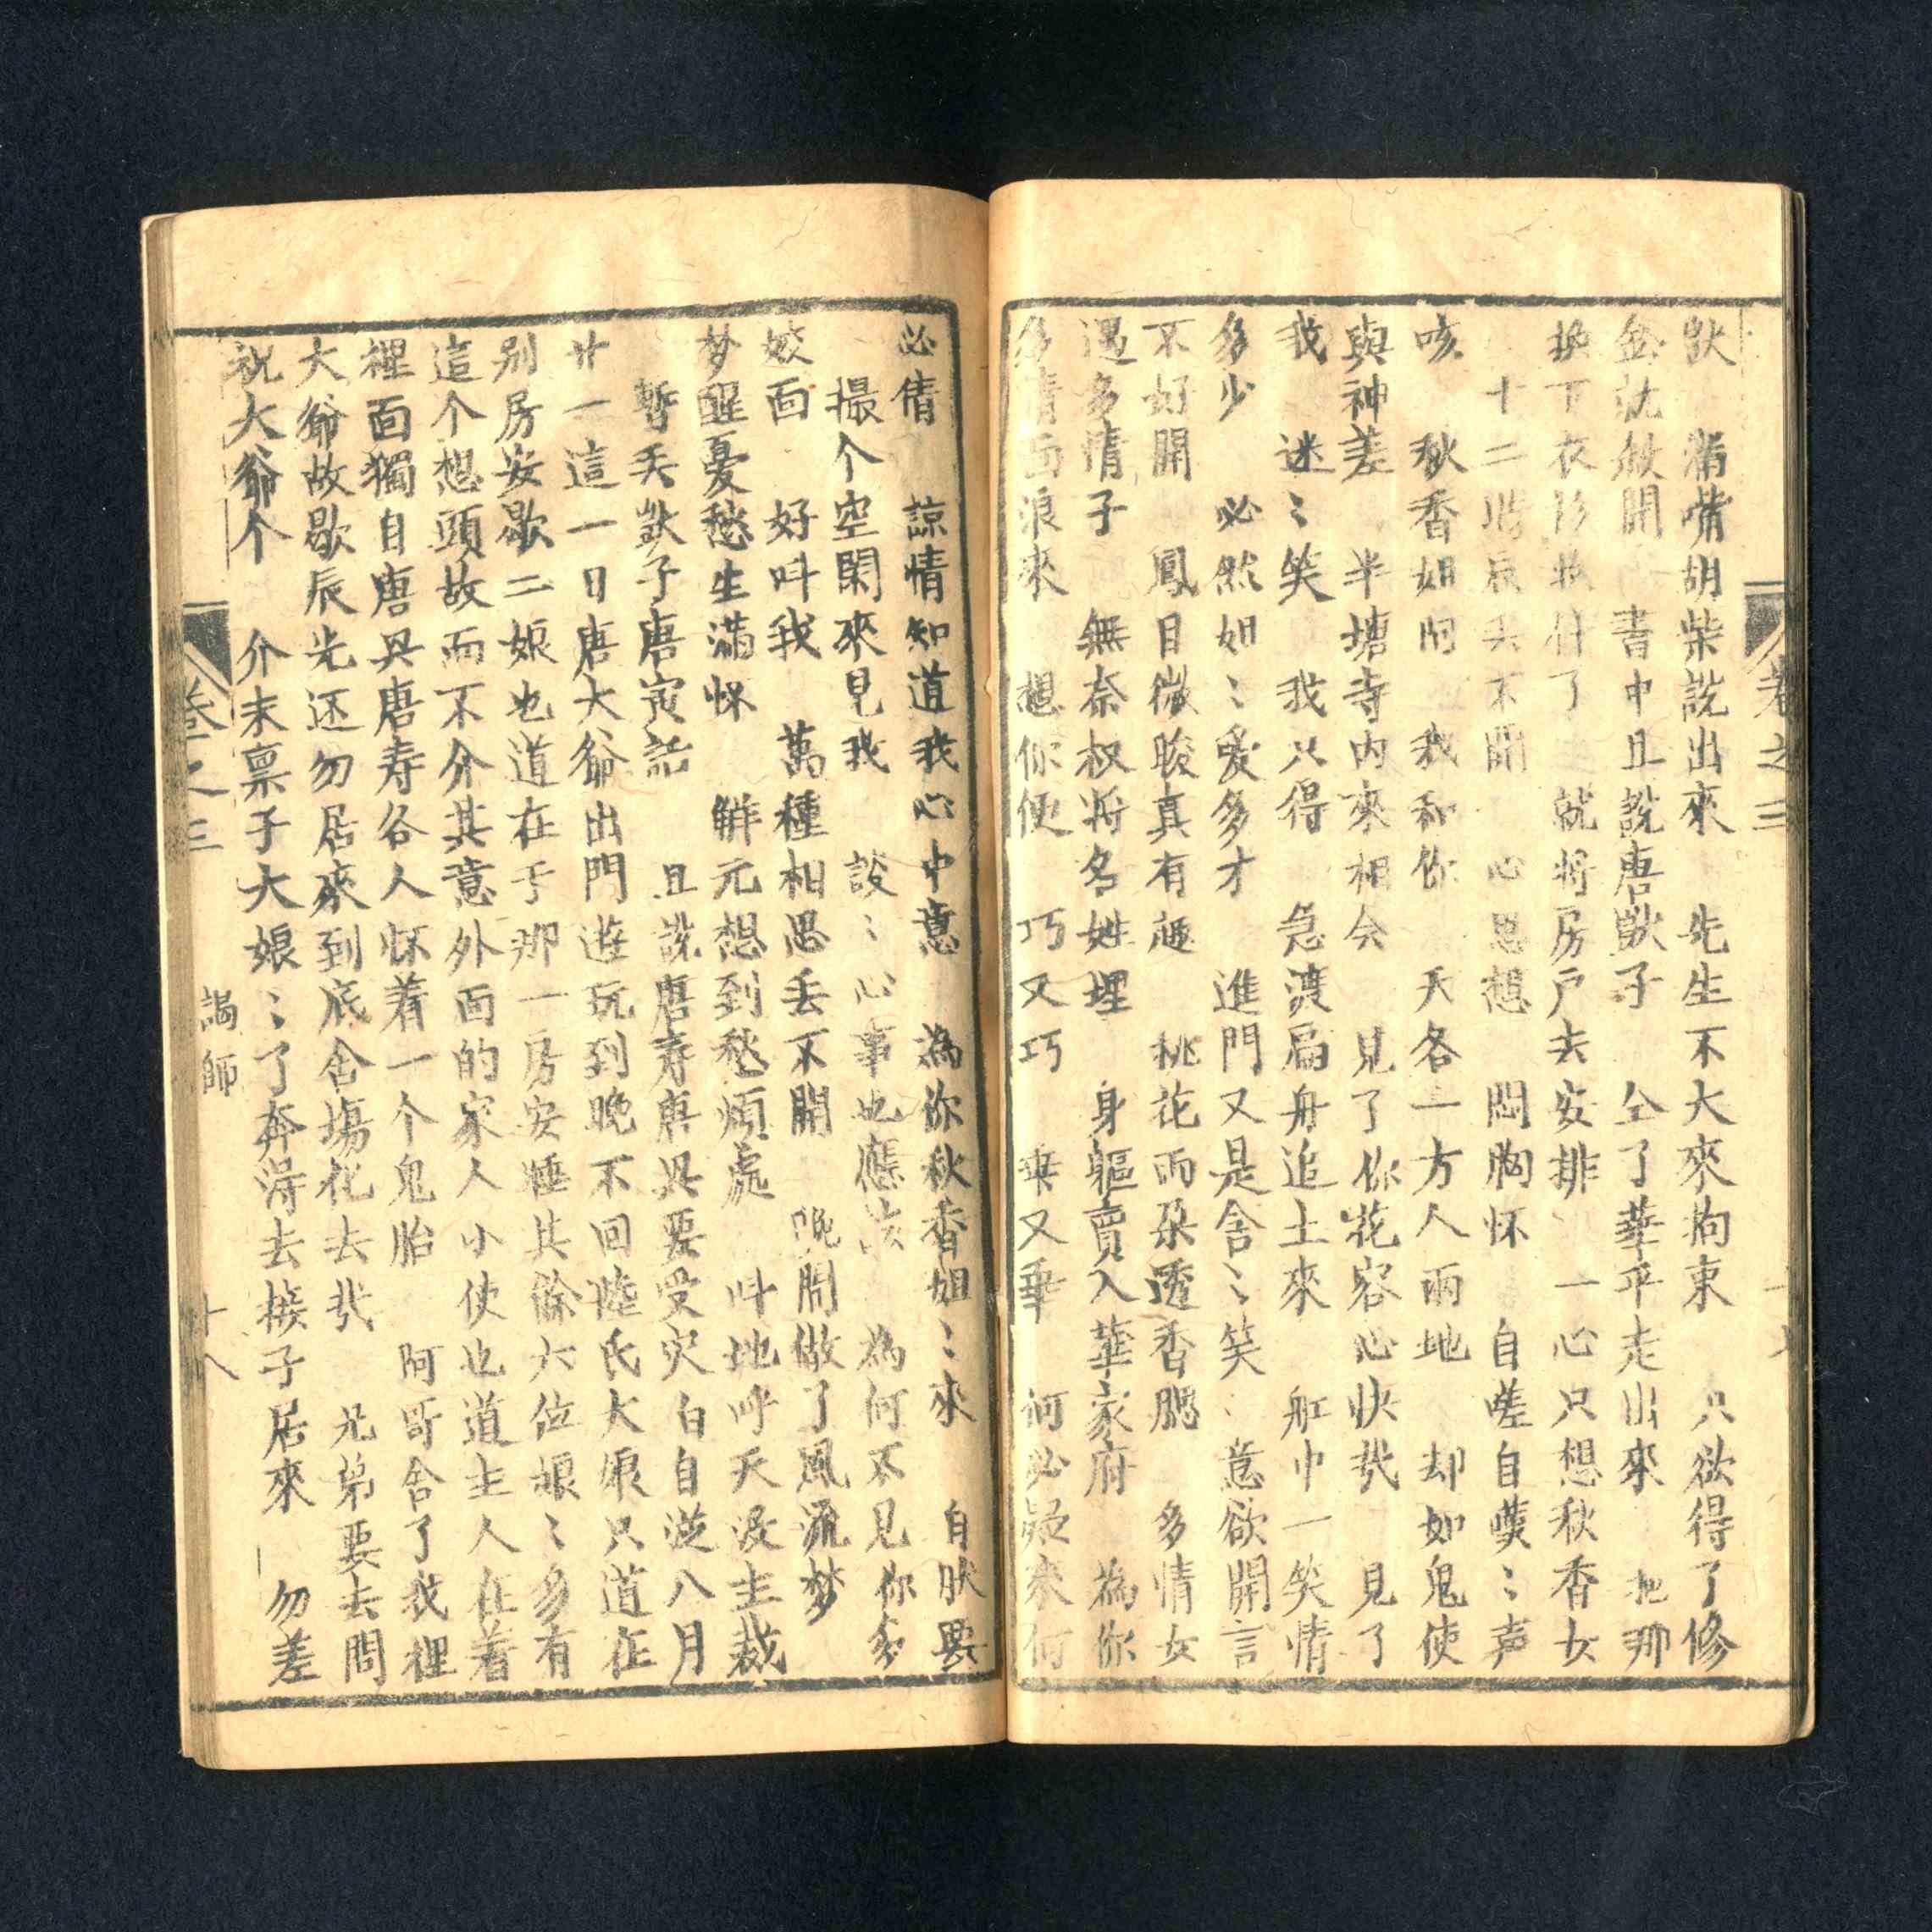 卷之三
獃　満嘴胡柴説出來　先生不大來拘束　只欲得了修
金就散開　書中且説唐獃子　仝了華平走出來　把那
換下衣衫收什了　就將房戶去安排　一心只想秋香女
十二時辰丢不開　心思想　悶胸怀　自嗟自嘆〻声
咳　秋香姐阿　我和你　天各一方人兩地　却如鬼使
與神差　半塘寺内來相会　見了你花容心快哉　見了
我　迷〻笑　我只得　急渡扁舟追土來　舡中一笑情
多少　必然姐〻愛多才　進門又是含〻笑　意欲開言
不好開　鳳目微睃真有趣　桃花兩朶透香腮　多情女
遇多情子　無奈权将名姓埋　身軀賣入華家府　為你
多情面浪來　想你便　巧又巧　乖又乖　何必疑來何
必倩　諒情知道我心中意　為你秋香姐〻來　自肰要
撮个空閑來見我　談〻心事也應該　為何不見你多
姣面　好呌我　萬種相思丢不開　晩間做了風流梦
梦醒憂愁生滿怀　觧元想到愁煩處　呌地呼天没主裁
暫丢獃子唐寅話　且説唐寿唐兴要受灾　白自従八月
廿一這一日唐大爺出門遊玩到晚不回陸氏大娘只道在
别房安歇二娘也道在于那一房安睡其餘六位娘〻多有
這个想頭故而不介其意外面的家人小使也道主人在着
裡面獨自唐兴唐寿各人怀着一个鬼胎　阿哥舍了我裡
大爺故歇辰光还勿居來到底舍塲化去哉　兄弟要去問
祝大爺个　介末禀子大娘〻了奔得去接子居來　勿差
卷之三　謁師　十八